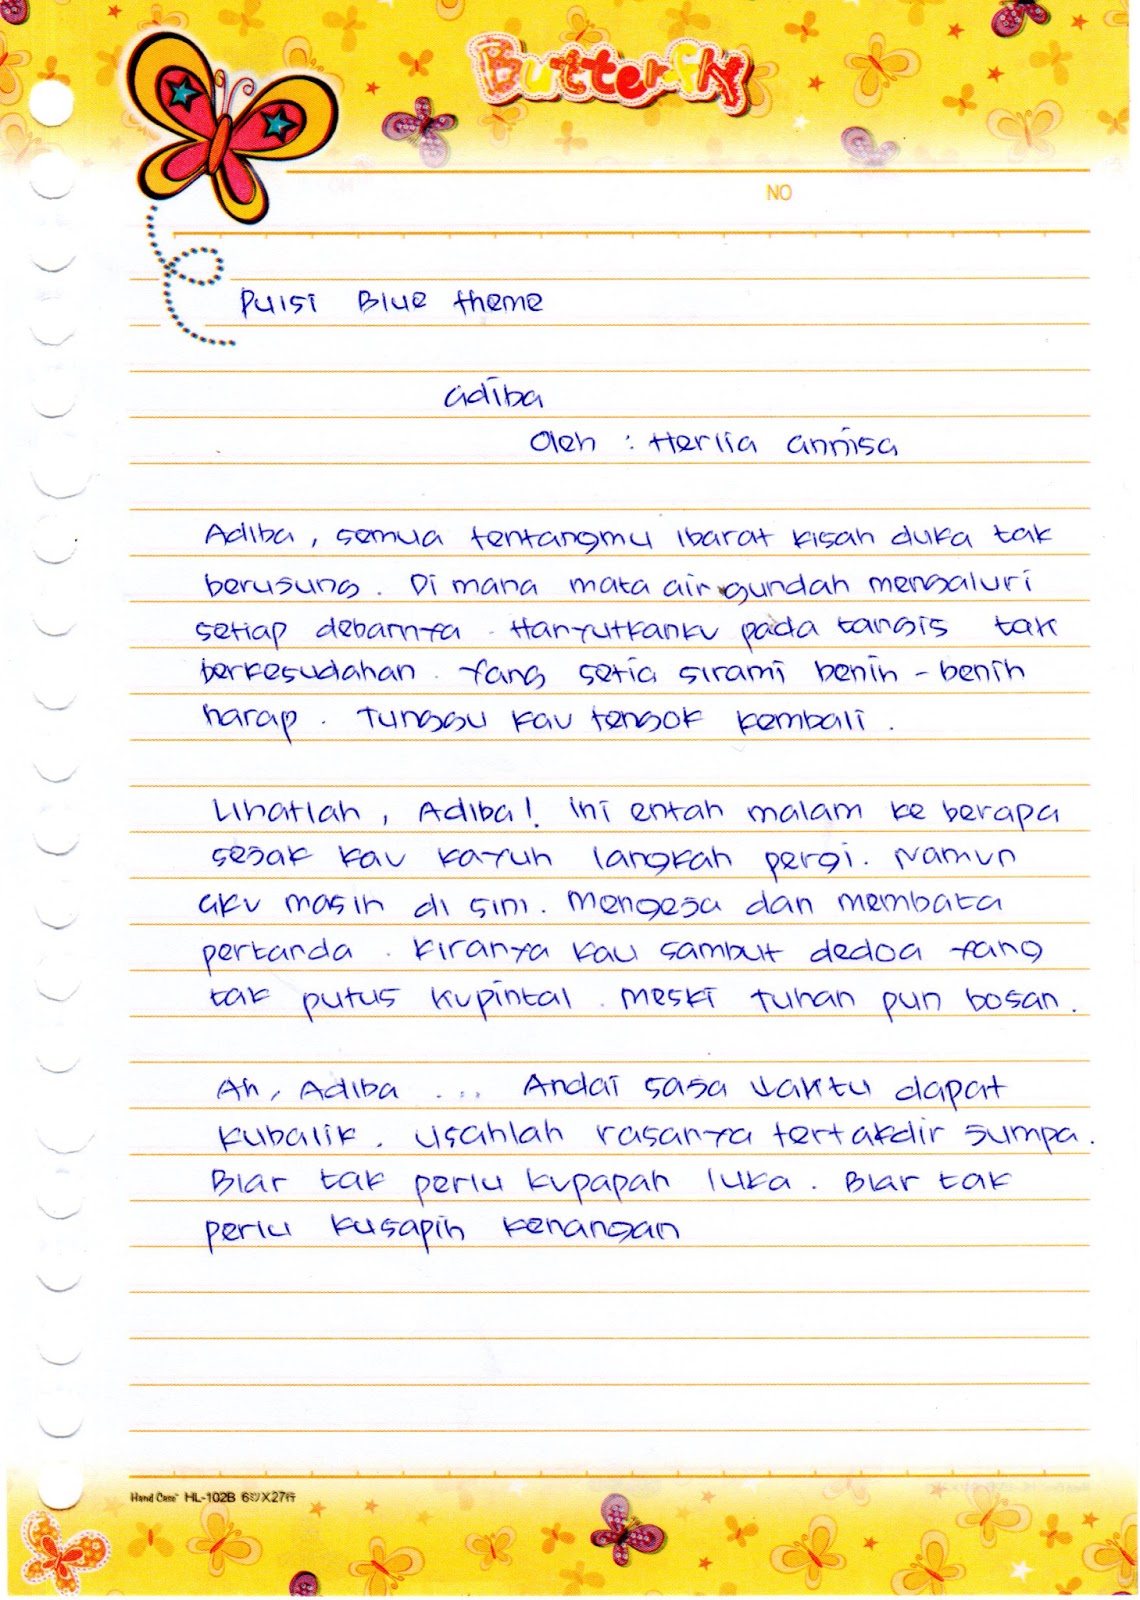 Butterfly
NO
Puisi Blue theme
Adiba
Oleh : Herlia annisa
Adiba, semua tentangmu ibarat kisah duka tak
berusung. Di mana mata air gundah mengaluri
setiap debarnya. Hanyutkanku pada tangis tak
berkesudahan. Yang setia sirami benih-benih
harap. Tunggu kau tengok kembali.
Lihatlah, Adiba! Ini entah malam ke berapa
sejak kau kayuh langkah pergi. Namun
aku masih di sini. Mengeja dan membata
pertanda. Kiranya kau sambut dedoa yang
tak putus kupintal. Meski Tuhan pun bosan.
Ah, Adiba ... Andai saja waktu dapat
kubalik. Usahlah rasanya tertakdir jumpa.
Biar tak perlu kupapah luka. Biar tak
perlu kusapih kenangan
Hand Case HL-102B 6㍉X27行